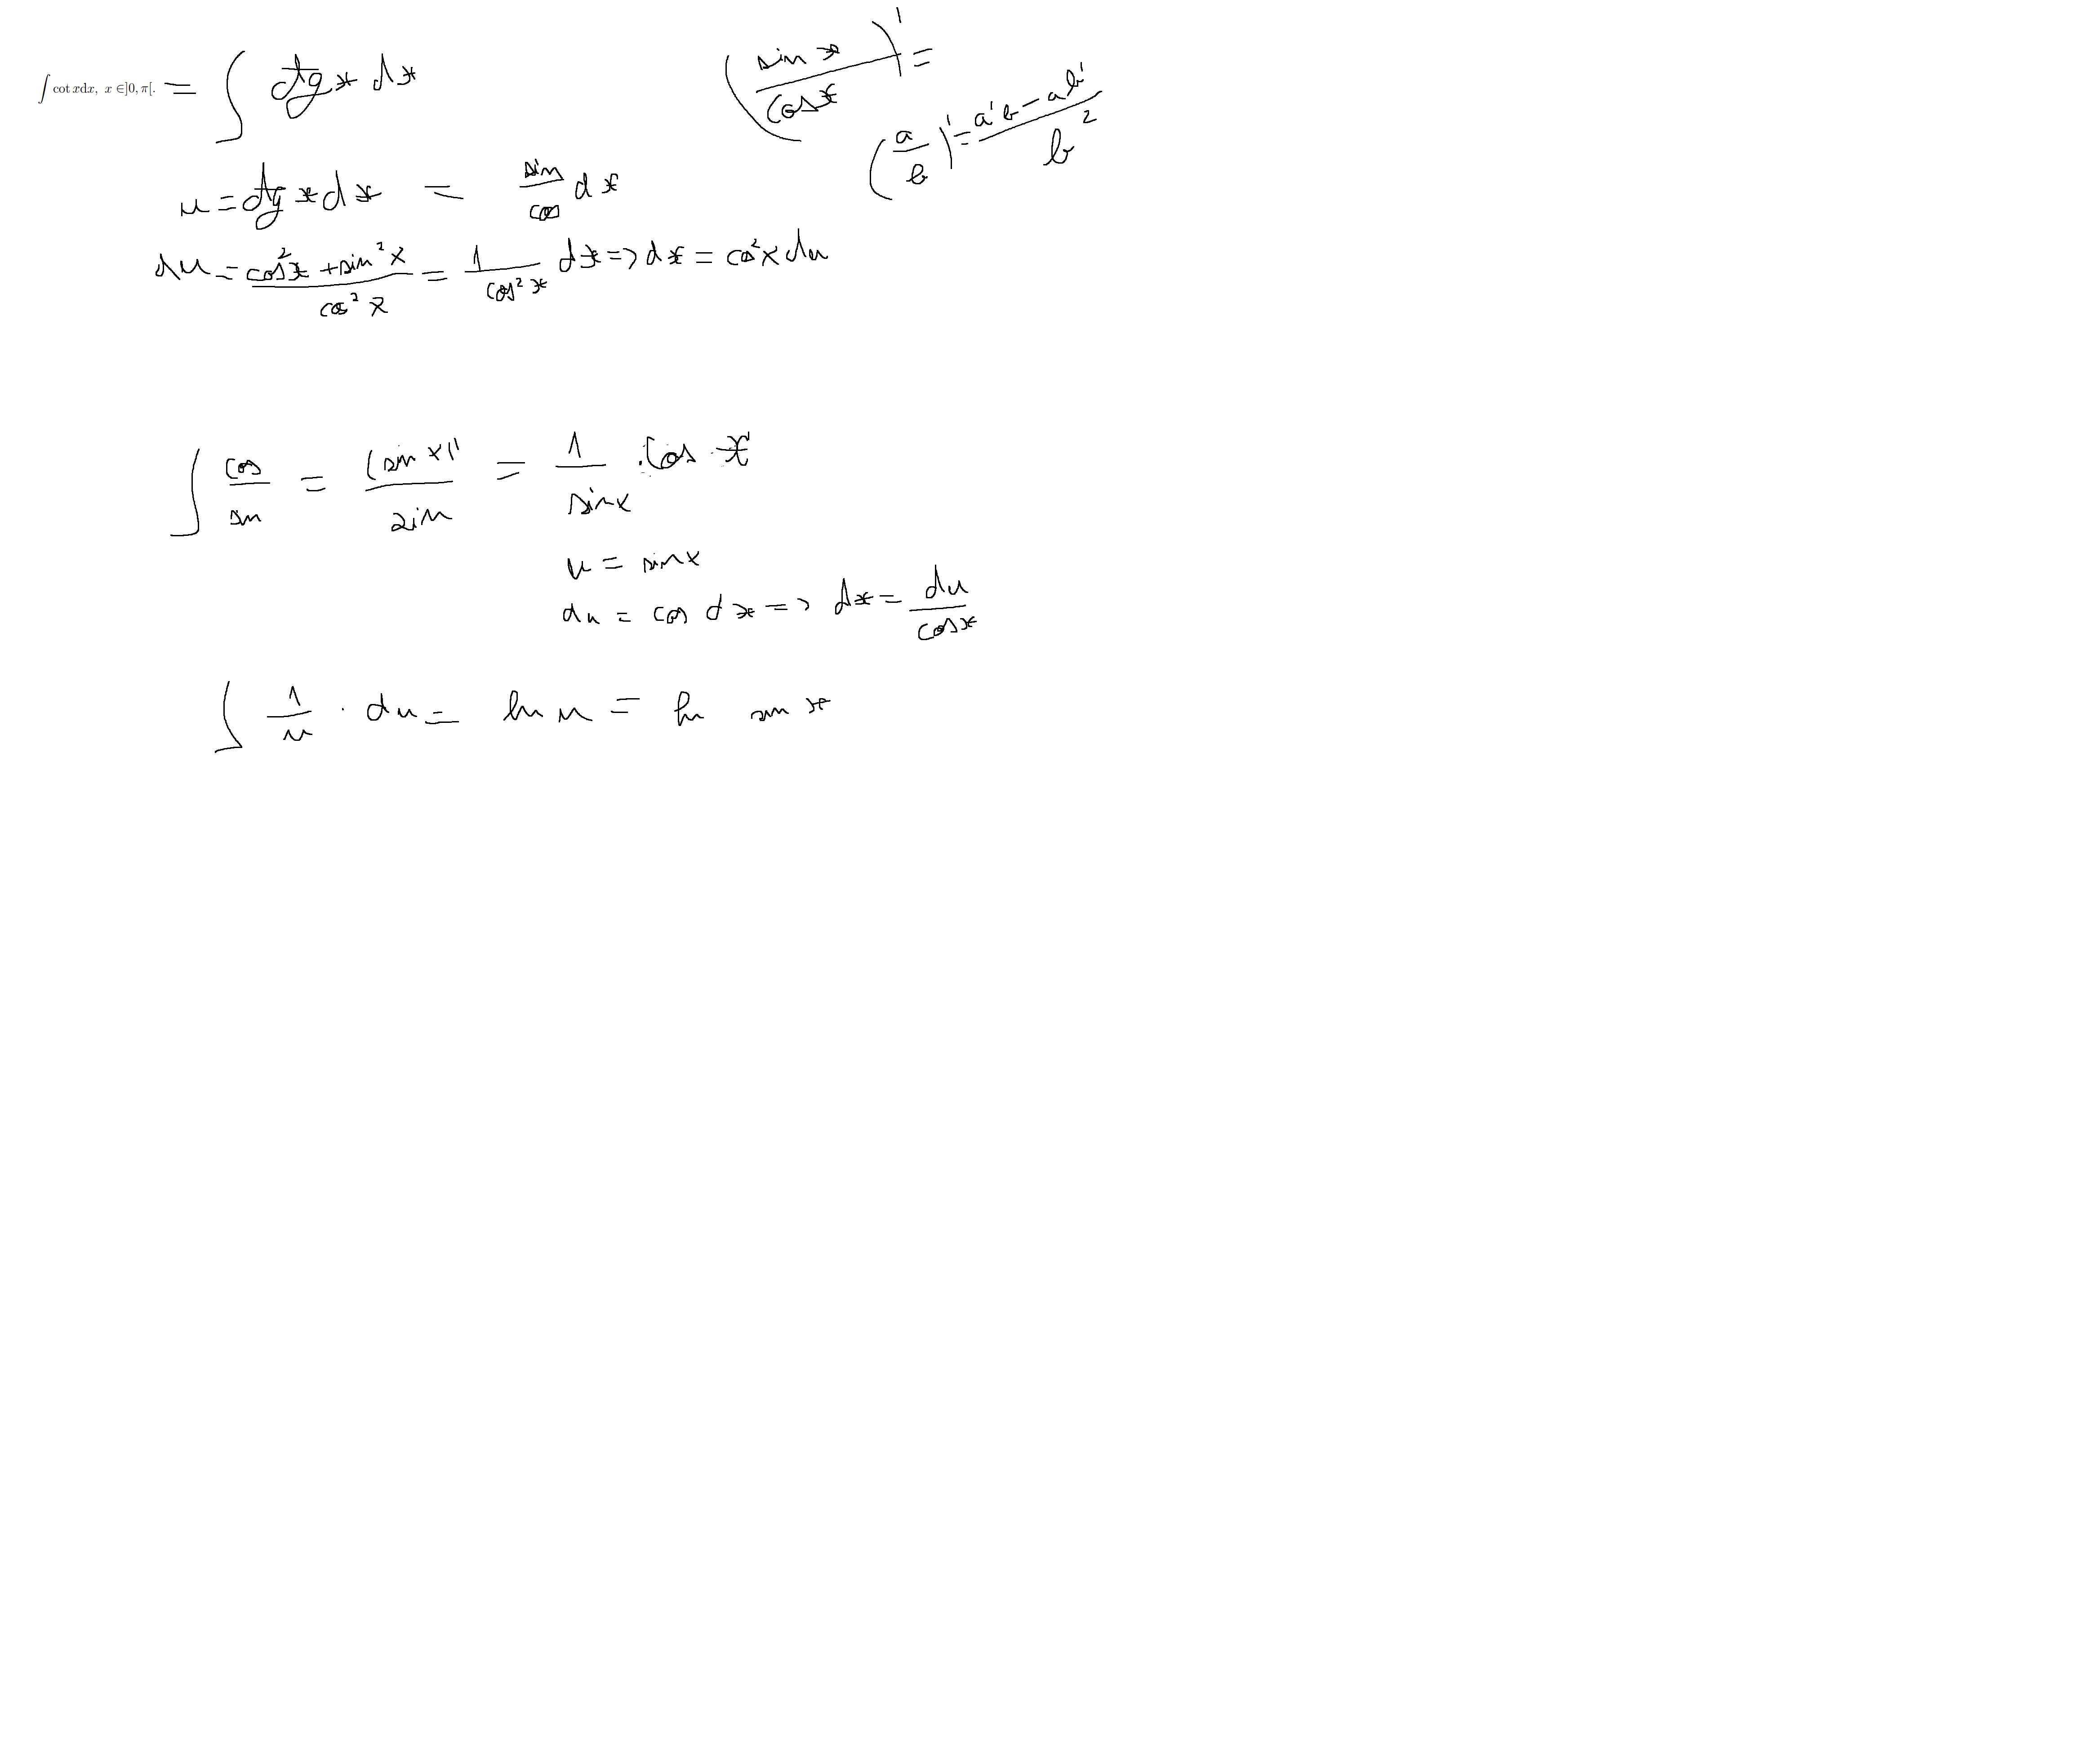 ∫ cot xdx, x ∈]0, π[. = ∫ ctg x dx
(sin x / cos x)' =
(a / b)' = (a'b − ab') / b²
u = ctg x dx = sin / cos dx
du = (cos²x + sin²x) / cos²x = 1 / cos²x dx => dx = cos²x du
∫ cos / sin = (sin x)' / sin = 1 / sin x · cos x
u = sin x
du = cos dx => dx = du / cos x
∫ 1 / u · du = ln u = ln sin x